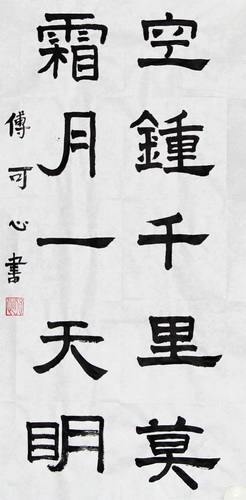 空鍾千里莫
霜月一天明
傅可心書